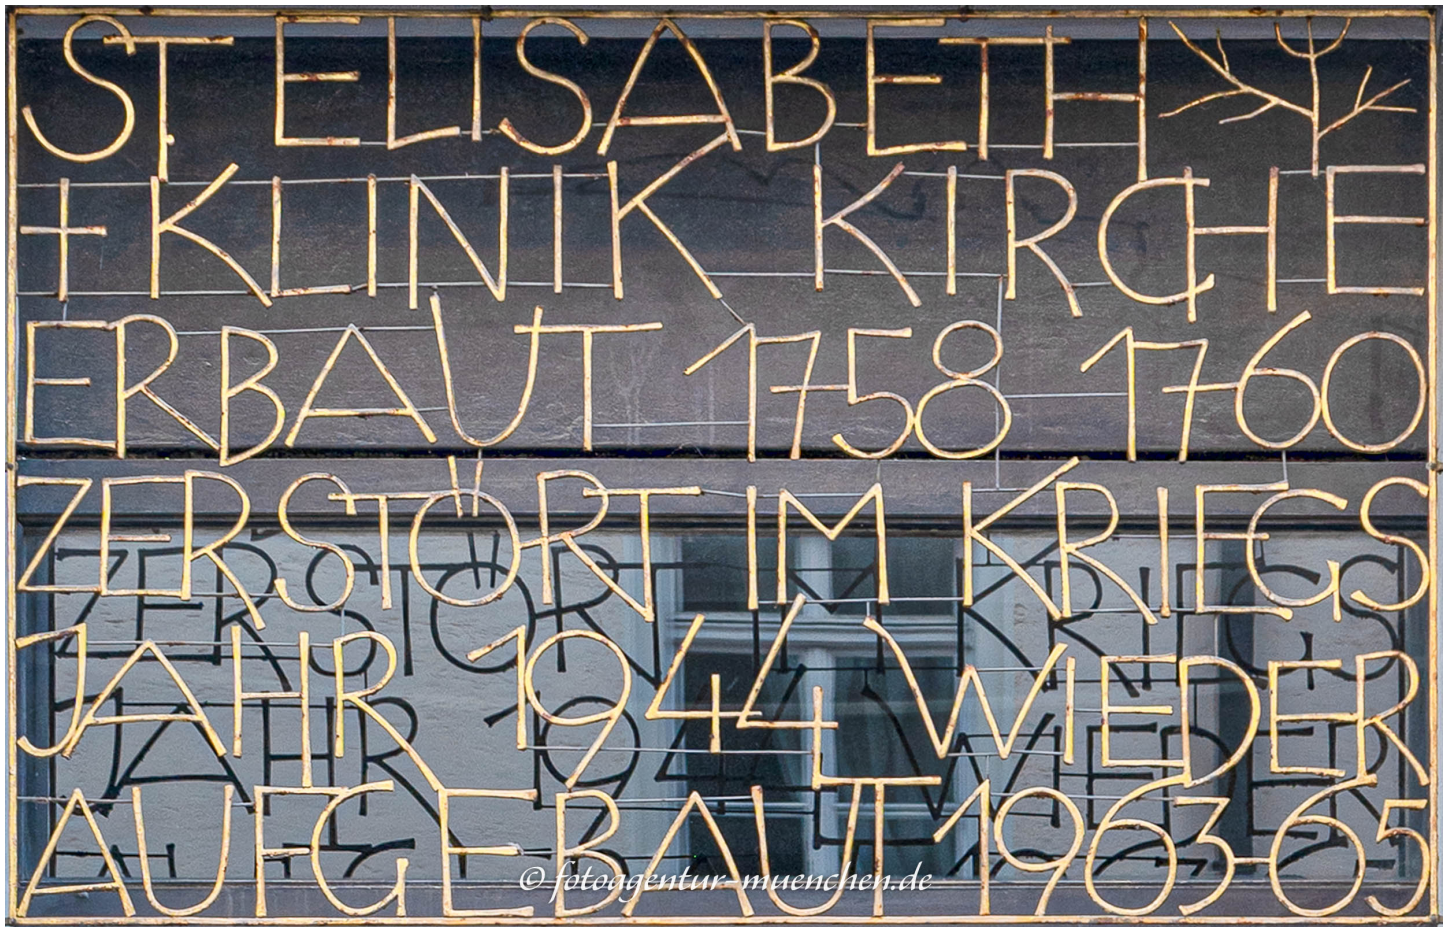 ST. ELISABETH
+ KLINIK KIRCHE
ERBAUT 1758 1760
ZERSTÖRT IM KRIEGS
JAHR 1944 WIEDER
AUFGEBAUT 1963-65
© fotoagentur-muenchen.de